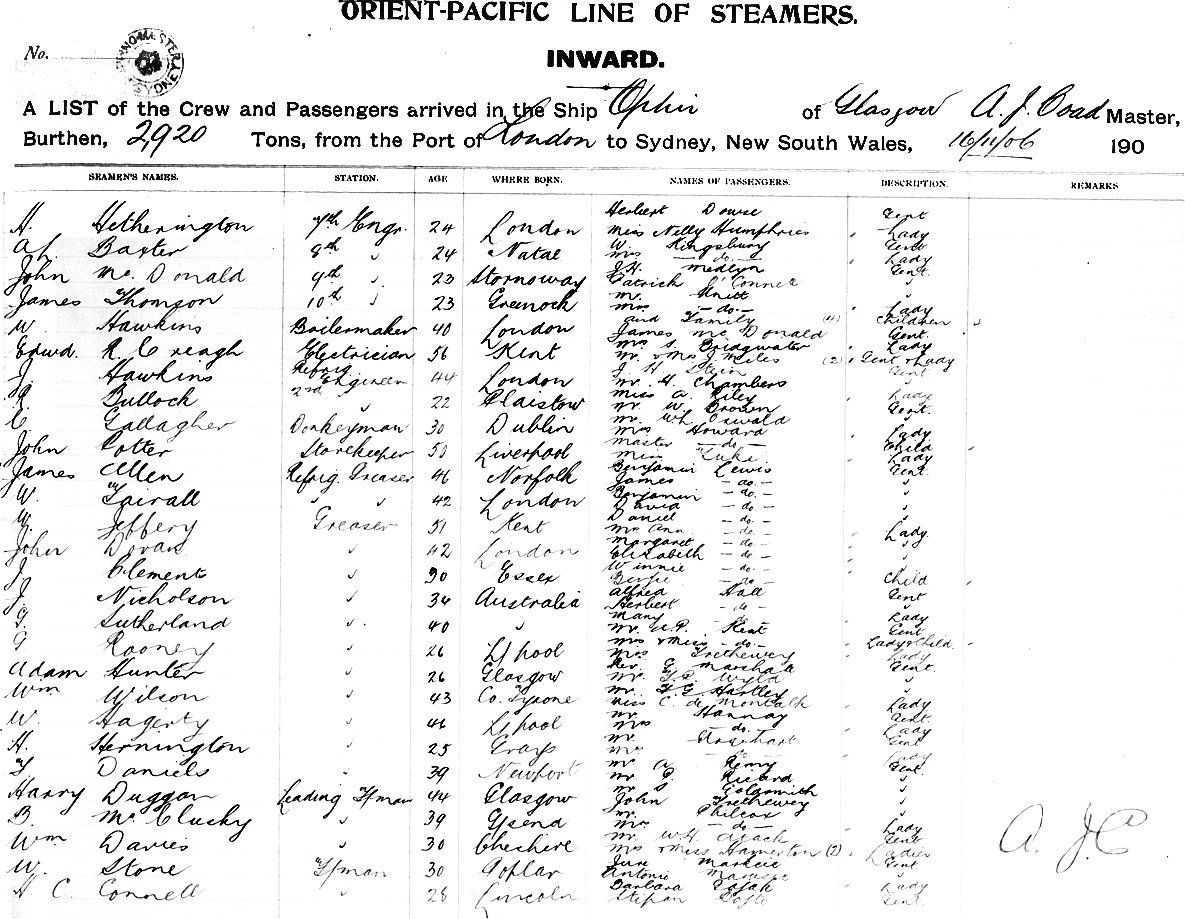 ORIENT-PACIFIC LINE OF STEAMERS.
No.
INWARD.
A LIST of the Crew and Passengers arrived in the Ship Ophir of Glasgow A. J. Coad Master,
Burthen, 2920 Tons, from the Port of London to Sydney, New South Wales, 16/11/06 190
SEAMEN'S NAMES. STATION. AGE WHERE BORN. NAMES OF PASSENGERS. DESCRIPTION. REMARKS
H. Hetherington 7th Engr. 24 London
Baxter 8th " 24 Natal
John Mc Donald 9th " 23 Stornoway
James Thomson 10th " 23 Greenock
W. Hawkins Boilermaker 40 London
Edwd. R. Creagh Electrician 56 Kent
J. Hawkins Refrig. Engineer 44 London
Bullock 2nd " 22 Plaistow
Gallagher Donkeyman 30 Dublin
John Potter Storekeeper 50 Liverpool
James Allen Refrig. Greaser 46 Norfolk
W. Tairall " " 42 London
W. Jeffery Greaser 51 Kent
John Doran " 42 London
J. Clements " 30 Essex
J. Nicholson " 34 Australia
Sutherland " 40 "
Rooney " 26 L'pool
Adam Hunter " 26 Glasgow
Wm Wilson " 43 Co. Tyrone
W. Hagerty " 46 L'pool
H. Hernington " 25 Grays
Daniels " 39 Newport
Harry Duggan Leading Ffman 44 Glasgow
B. McClusky " 39 G'send
Wm Davies " 30 Cheshire
W. Stone Ffman 30 Poplar
H C. Connell " 28 Lincoln
Herbert Dowse Gent
Miss Nelly Humphries Lady
W. Kingsbury Gent
Mrs -do- Lady
J.H. Medlyn Gent.
Patrick O'Conner "
Mr. Knitt "
Mrs -do- Lady
and Family (4) Children
James Mc Donald Gent.
Mrs S. Bridgwater Lady
Mr. & Mrs J Miles (2) Gent & Lady
J. H. Stein Gent
Mr. H. Chambers "
Miss A. Riley Lady
Mr. W. Brown Gent.
Mr. Wh Oswald "
Mrs Howard Lady
Master -do- Child
Miss Luke Lady
Benjamin Lewis Gent.
James -do-
Benjamin -do-
David -do-
Daniel -do-
Mrs Ann -do- Lady
Margaret -do-
Elizabeth -do-
Winnie -do-
-do- Child
Alfred Hall Gent
Herbert -do-
Mary -do- Lady
Mr. A.P. Kent Gent
Mrs & Miss -do- Lady & Child
Miss Trethewey Lady
Rev. G. Marshall Gent
Mr. Wyld "
Mr. F. G. Hartley "
Miss C. de Montalk Lady
Mr. Hannay Gent.
Mrs -do- Lady
Mr. Gent
Mrs Lady
Mr A. Remy Gent
Mr. P. Ricard "
Mr S Goldsmith "
John Trethewey "
Mr. Philcox "
Mrs -do- Lady
Mr W.H. Gent
Mrs & Miss Hamerton (2) Ladies
Gent
Antonie
Barbara Lady
Stipan Gent
A. J. C